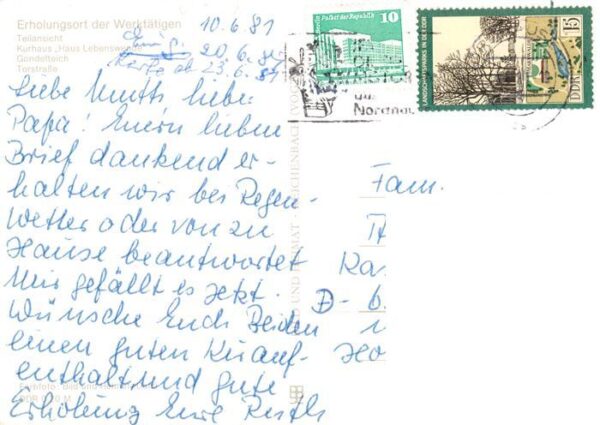 Erholungsort der Werktätigen
Teilansicht
Kurhaus „Haus Lebenswende"
Gondelteich
Torstraße
10.6.81
20.6.81
Karte ab 23.6.81
Liebe Mutti, lieber
Papa! Euern lieben
Brief dankend er-
halten wir bei Regen-
Wetter oder von zu
Hause beantwortet
Mir gefällt es jetzt.
Wünsche Euch Beiden
einen guten Kurauf-
enthalt und gute
Erholung Eure
Fam.
Ka
D-6.
Ho
Palast der Republik
10
LANDSCHAFTSPARKS IN DER DDR
15
DDR
BILD UND HEIMAT REICHENBACH
Farbfoto: Bild und Heimat